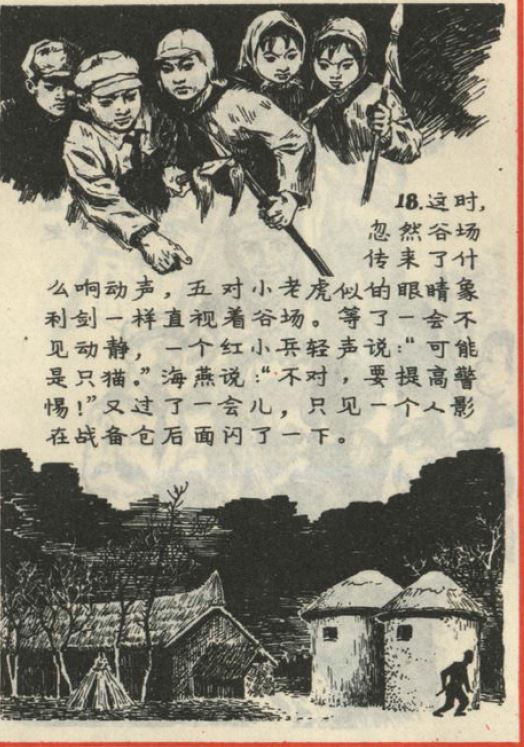 18.这时,
忽然谷场
传来了什
么响动声，五对小老虎似的眼睛象
利剑一样直视着谷场。等了一会不
见动静，一个红小兵轻声说：“可能
是只猫。”海燕说：“不对，要提高警
惕！”又过了一会儿，只见一个人影
在战备仓后面闪了一下。